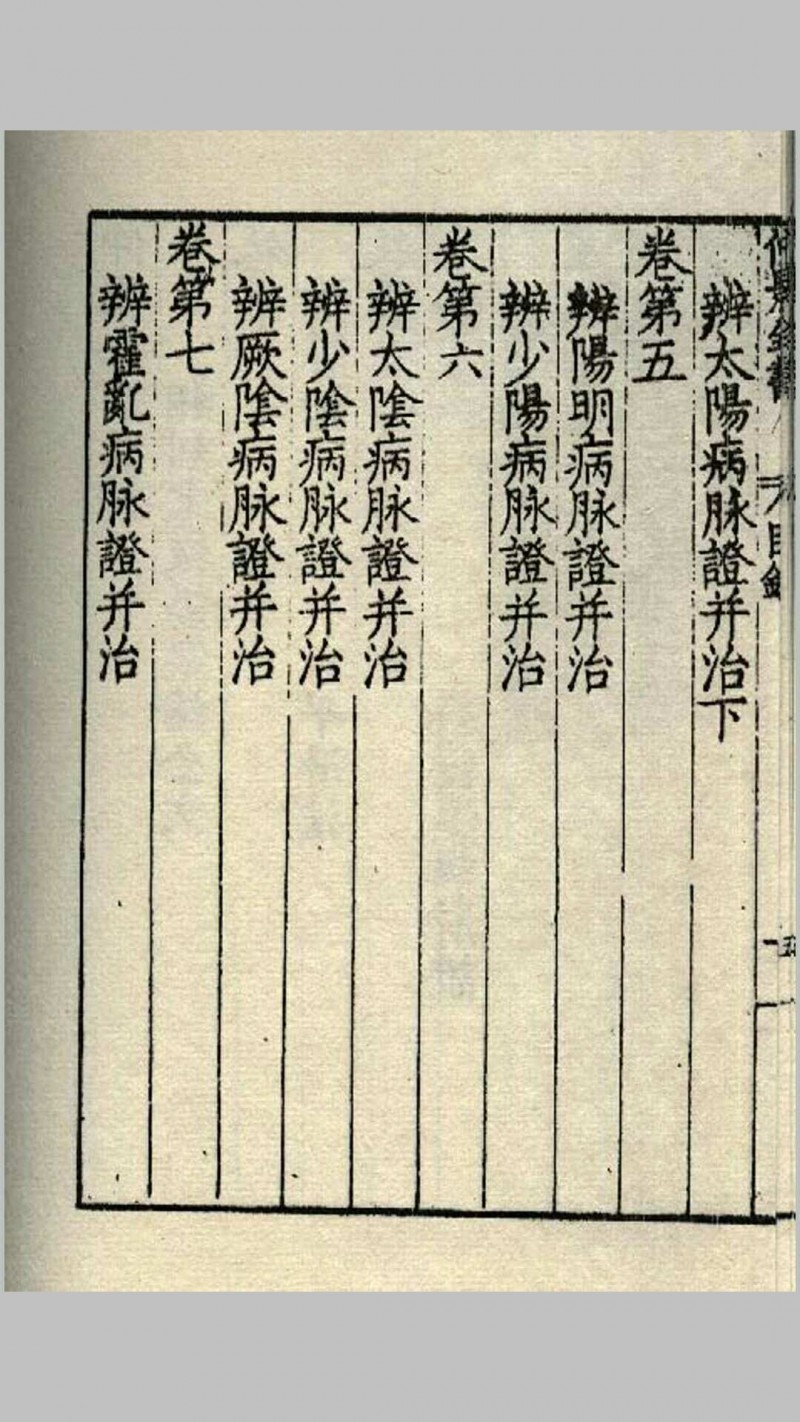 辨太陽病脉證并治下
卷第五
辨陽明病脉證并治
辨少陽病脉證并治
卷第六
辨太陰病脉證并治
辨少陰病脉證并治
辨厥陰病脉證并治
卷第七
辨霍亂病脉證并治